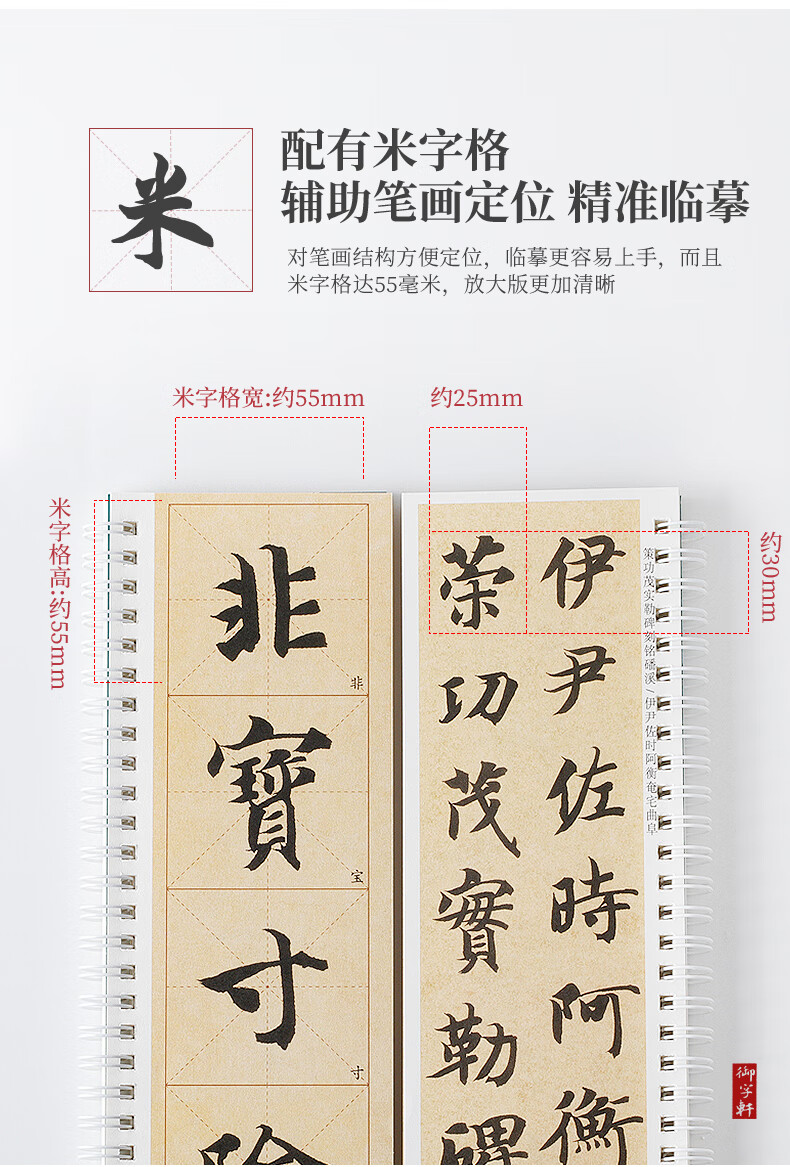 米
配有米字格
辅助笔画定位 精准临摹
对笔画结构方便定位，临摹更容易上手，而且
米字格达55毫米，放大版更加清晰
米字格宽:约55mm
约25mm
米字格高:约55mm
约30mm
非
非
寶
宝
寸
寸
伊尹佐時阿衡
策功茂實勒碑
策功茂实勒碑刻铭磻溪/伊尹佐时阿衡奄宅曲阜
御字軒